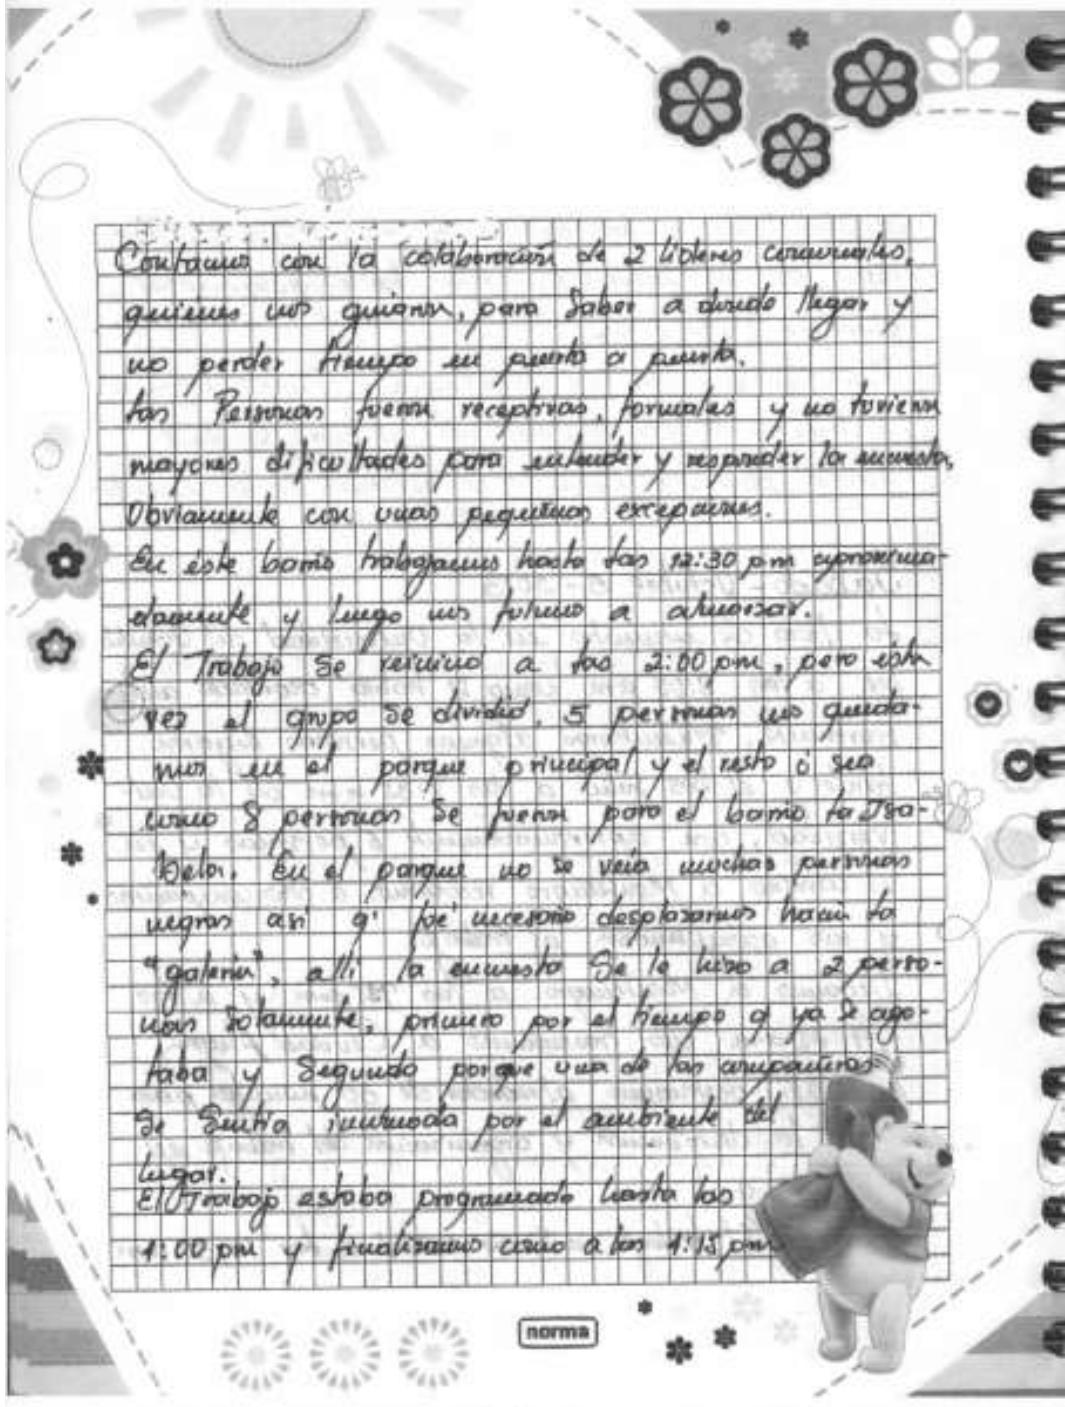 Contamos con la colaboración de 2 líderes comunales,
quienes nos guiaron, para saber a donde llegar y
no perder tiempo en puerta a puerta.
Las Personas fueron receptivas, formales y no tuvieron
mayores dificultades para entender y responder la encuesta,
Obviamente con unas pequeñas excepciones.
En éste barrio trabajamos hasta las 12:30 pm aproxima-
damente y luego nos fuimos a almorzar.
El Trabajo se reinició a las 2:00 pm, pero esta
vez el grupo se dividió, 5 personas nos queda-
mos en el parque principal y el resto ó sea
como 8 personas se fueron para el barrio la Isa-
bela. En el parque no se veía muchas personas
negras asi q' fué necesario desplazarnos hacia la
"galeria", alli la encuesta se le hizo a 2 perso-
nas solamente, primero por el tiempo q' ya se ago-
taba y Segundo porque una de las compañeras
se Sentía incomoda por el ambiente del
lugar.
El Trabajo estaba programado hasta las
4:00 pm y finalizamos como a las 4:15 pm
norma